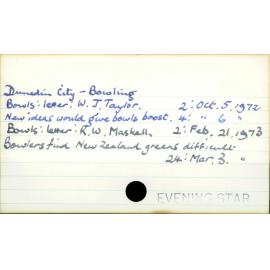 Dunedin City - Bowling
Bowls: letter: W. J. Taylor. 2: Oct. 5, 1972
New ideas would give bowls boost. 4: " 6 "
Bowls: letter: R. W. Maskell. 2: Feb. 21, 1973
Bowlers find New Zealand greens difficult
24: Mar. 3. "
EVENING STAR